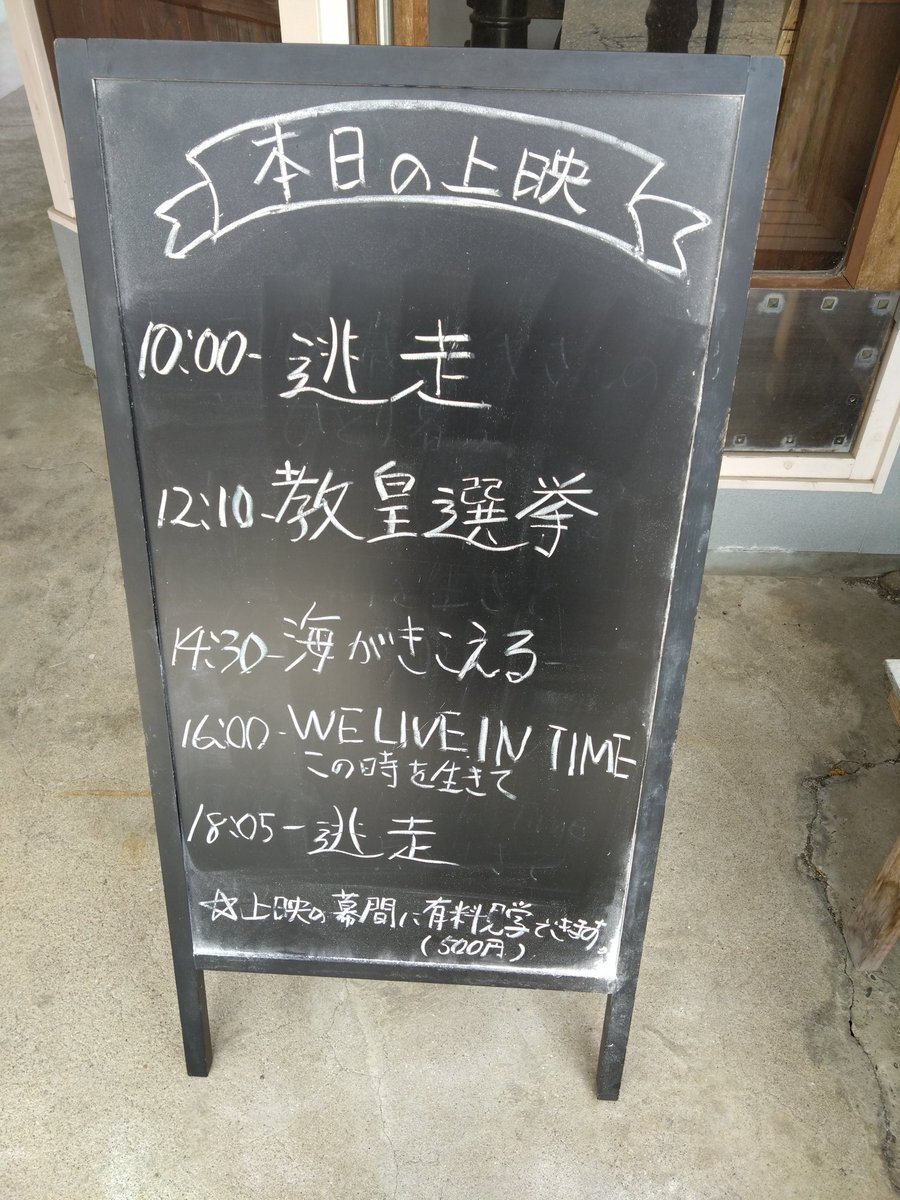 本日の上映
10:00- 逃走
12:10- 教皇選挙
14:30- 海がきこえる
16:00- WE LIVE IN TIME
この時を生きて
18:05- 逃走
☆上映の幕間に有料見学できます。
(500円)